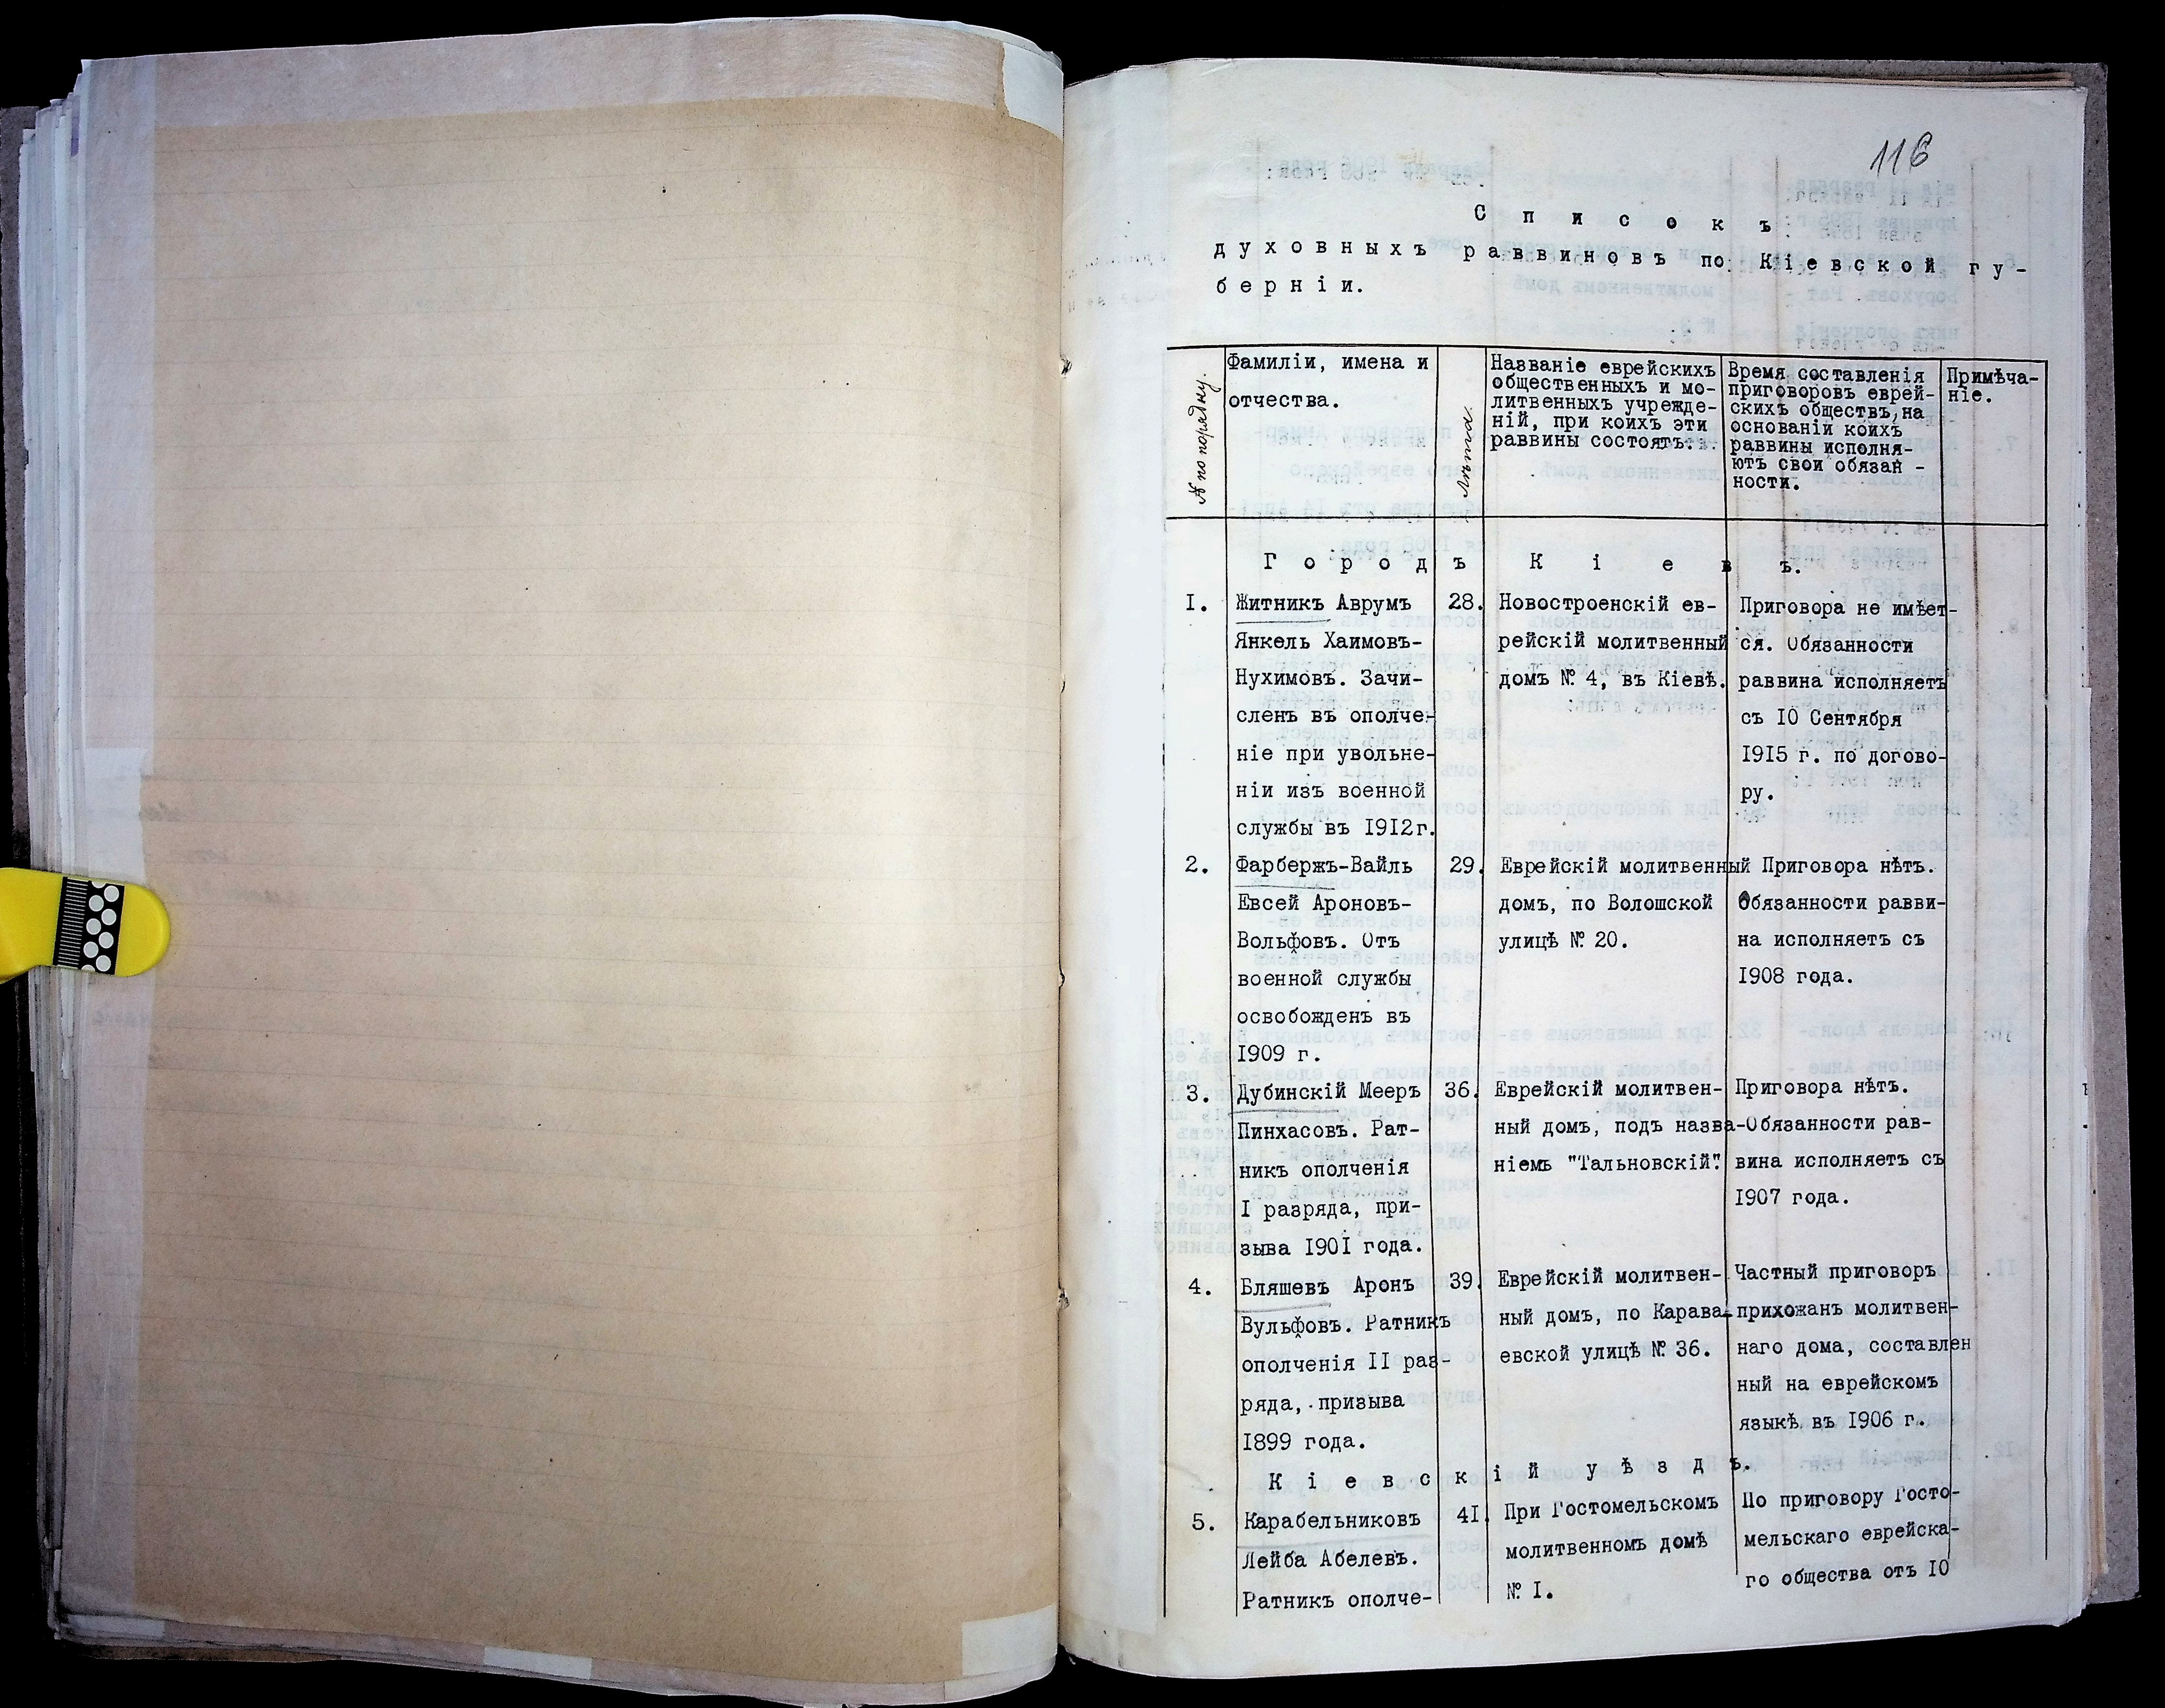 116
Списокъ
духовныхъ раввиновъ по Кіевской гу-
берніи.
№ по порядку.
Фамиліи, имена и
отчества.
Лѣта.
Названіе еврейскихъ
общественныхъ и мо-
литвенныхъ учрежде-
ній, при коихъ эти
раввины состоятъ.
Время составленія
приговоровъ еврей-
скихъ обществъ, на
основаніи коихъ
раввины исполня-
ютъ свои обязан -
ности.
Примѣча-
ніе.
Городъ Кіевъ.
I.
Житникъ Аврумъ
Янкель Хаимовъ-
Нухимовъ. Зачи-
сленъ въ ополче-
ніе при увольне-
ніи изъ военной
службы въ I9I2г.
28.
Новостроенскій ев-
рейскій молитвенный
домъ № 4, въ Кіевѣ.
Приговора не имѣет-
ся. Обязанности
раввина исполняетъ
съ IO Сентября
I9I5 г. по догово-
ру.
2.
Фарбержъ-Вайль
Евсей Ароновъ-
Вольфовъ. Отъ
военной службы
освобожденъ въ
I909 г.
29.
Еврейскій молитвенный
домъ, по Волошской
улицѣ № 20.
Приговора нѣтъ.
Обязанности равви-
на исполняетъ съ
I908 года.
3.
Дубинскій Мееръ
Пинхасовъ. Рат-
никъ ополченія
I разряда, при-
зыва I90I года.
36.
Еврейскій молитвен-
ный домъ, подъ назва-
ніемъ "Тальновскій".
Приговора нѣтъ.
Обязанности рав-
вина исполняетъ съ
I907 года.
4.
Бляшевъ Аронъ
Вульфовъ. Ратникъ
ополченія II раз-
ряда, призыва
I899 года.
39.
Еврейскій молитвен-
ный домъ, по Карава-
евской улицѣ № 36.
Частный приговоръ
прихожанъ молитвен-
наго дома, составлен
ный на еврейскомъ
языкѣ въ I906 г.
Кіевскій уѣздъ.
5.
Карабельниковъ
Лейба Абелевъ.
Ратникъ ополче-
4I.
При Гостомельскомъ
молитвенномъ домѣ
№ I.
По приговору Госто-
мельскаго еврейска-
го общества отъ IO